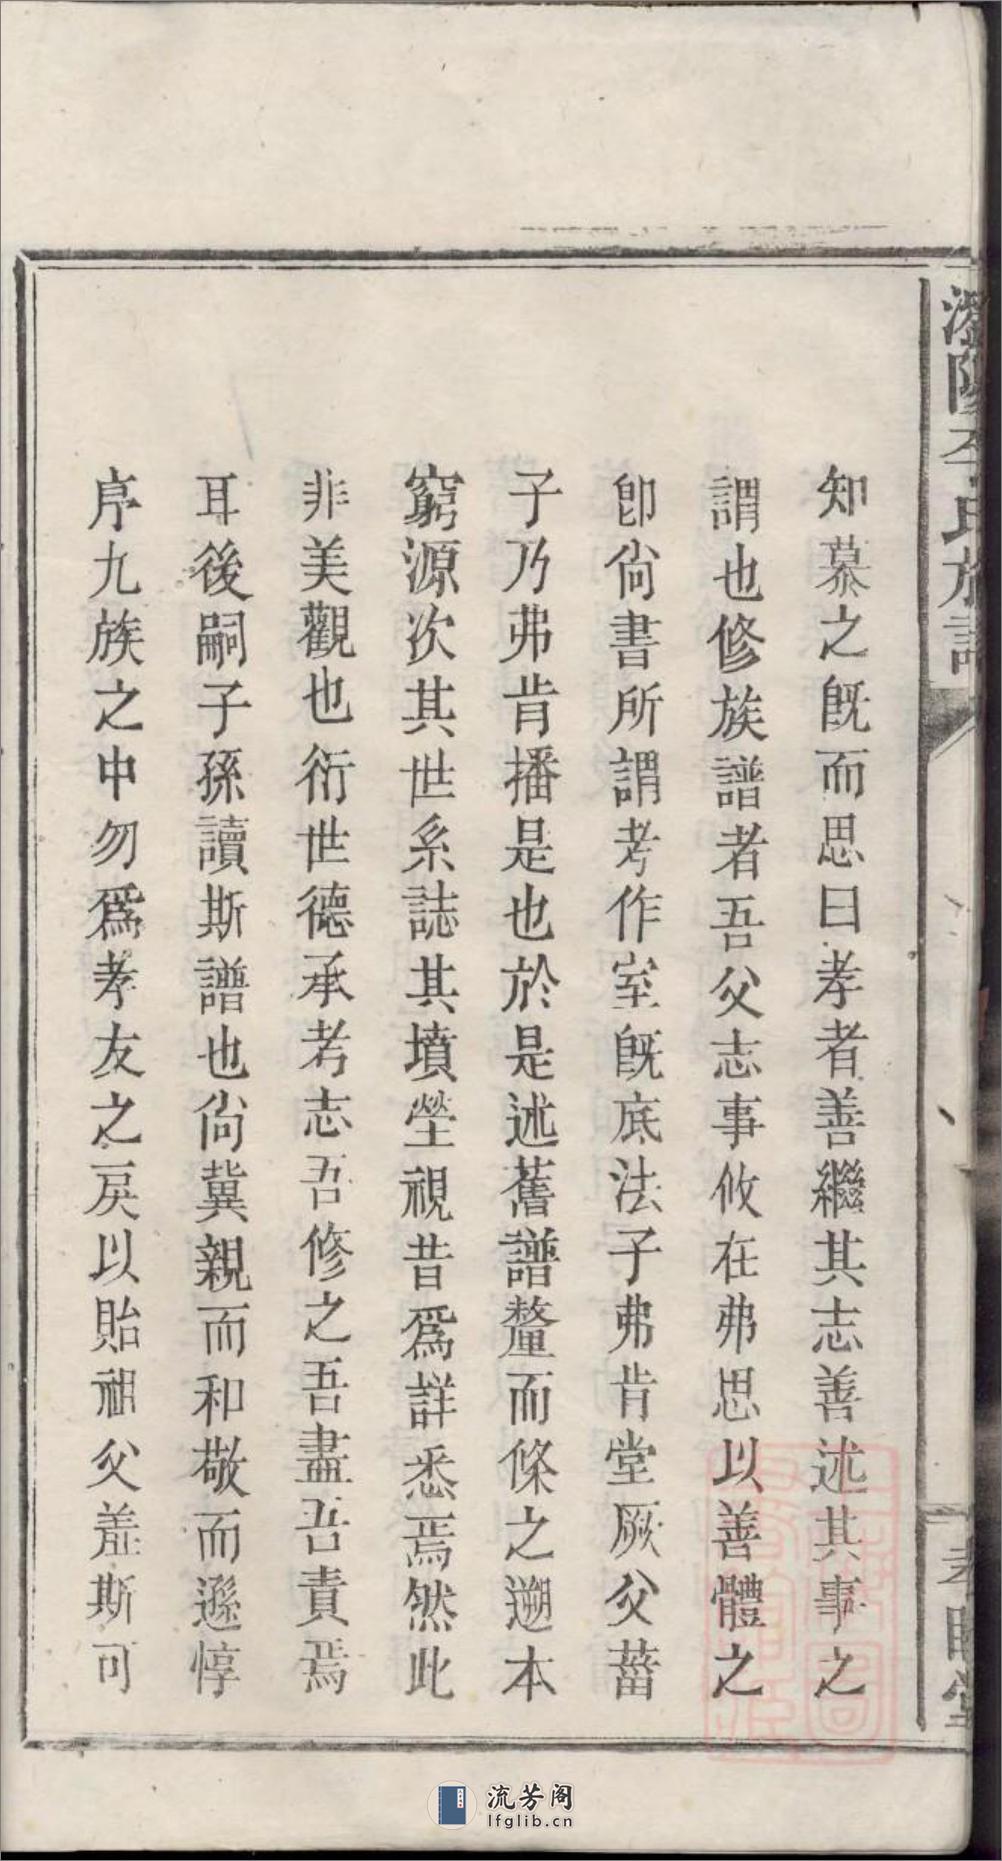 知慕之既而思曰孝者善繼其志善述其事之
謂也修族譜者吾父志事攸在弗思以善體之
卽尙書所謂考作室既底法子弗肯堂厥父菑
子乃弗肯播是也於是述舊譜釐而條之遡本
窮源次其世系誌其墳塋視昔爲詳悉焉然此
非美觀也衍世德承考志吾修之吾盡吾責焉
耳後嗣子孫讀斯譜也尙冀親而和敬而遜惇
序九族之中勿爲孝友之戾以貽祖父羞斯可
李氏族譜
流芳阁
lfglib.cn